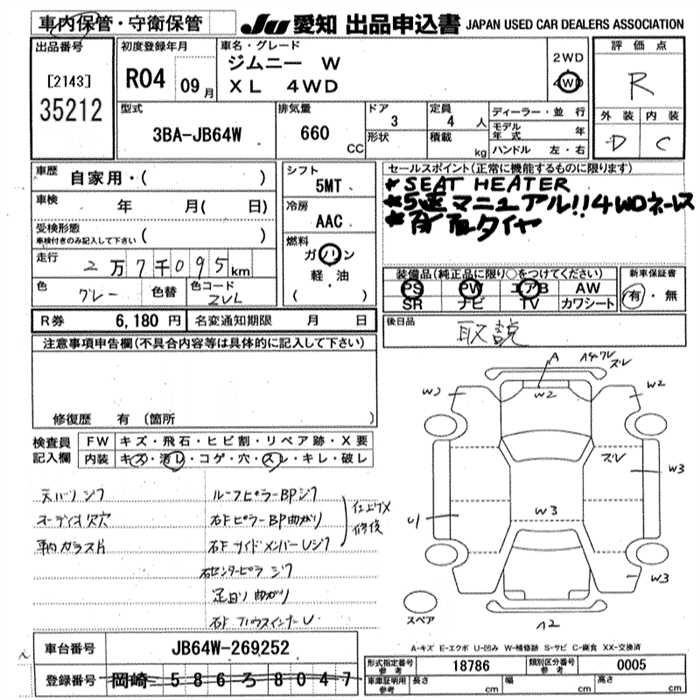 車内保管・守衛保管
JU 愛知 出品申込書 JAPAN USED CAR DEALERS ASSOCIATION
出品番号 初度登録年月 車名・グレード 評価点
[2143] R04 09月 ジムニー W 2WD
35212 XL 4WD 4WD R
型式 排気量 ドア 定員 ディーラー・並行 外装 内装
3BA-JB64W 660 CC 3 4 人 モデル年式 年 D C
形状 積載 kg ハンドル 左・右
車歴 自家用・( ) シフト 5MT セールスポイント(正常に機能するものに限ります)
車検 年 月( 日) 冷房 AAC *SEAT HEATER
受検形態 *5速マニュアル!!4WDネーレス
車検付きのみ記入して下さい ( ) 燃料
走行 2万7千095km ガソリン
軽・油
( )
装備品(純正品に限り○をつけてください) 新車保証書
色 グレー 色替 色コード ZVL PS PW エアB AW 有・無
SR ナビ TV カワシート
R券 6,180円 名変通知期限 月 日 後日品 取説
注意事項申告欄(不具合内容等は具体的に記入して下さい)
修復歴 有 (箇所 )
検査員 FW キズ・飛石・ヒビ割・リペア跡・X要
記入欄 内装 キズ・汚レ・コゲ・穴・スレ・キレ・破レ
A
ズレ
W2 W2 W2
ズレ
W3
U1 W3
W3
スペア
A2
オーディオ欠穴
ルーフピラーBPジワ
右FピラーBP曲がり
右FサイドメンバーUジワ
右センターピラ ジワ
足回り曲がり
A-キズ E-エクボ U-凹み W-補修跡 S-サビ C-腐食 XX-交換済
車台番号 JB64W-269252
登録番号 岡崎 586ろ8047
型式指定番号 参考 18786 類別区分番号 参考 0005
車庫証明用 参考 長さ cm 幅 cm 高さ cm